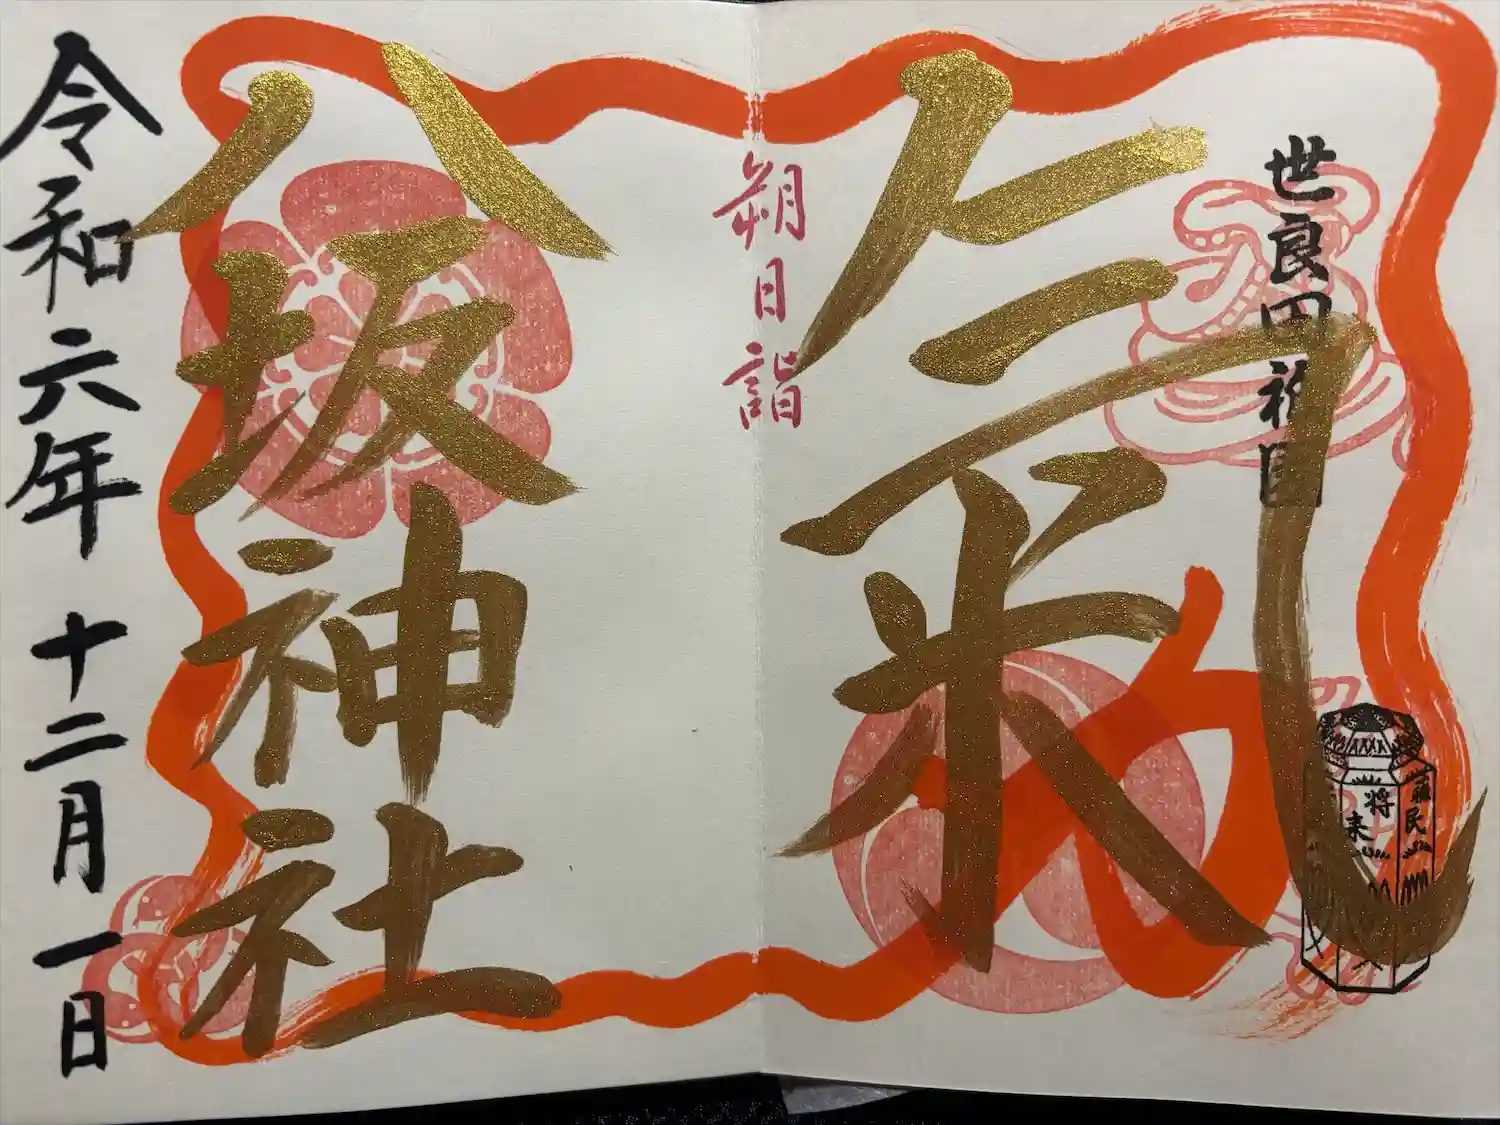 世良田祇園
氣
蘇民
将来
朔日詣
八坂神社
令和六年十二月一日